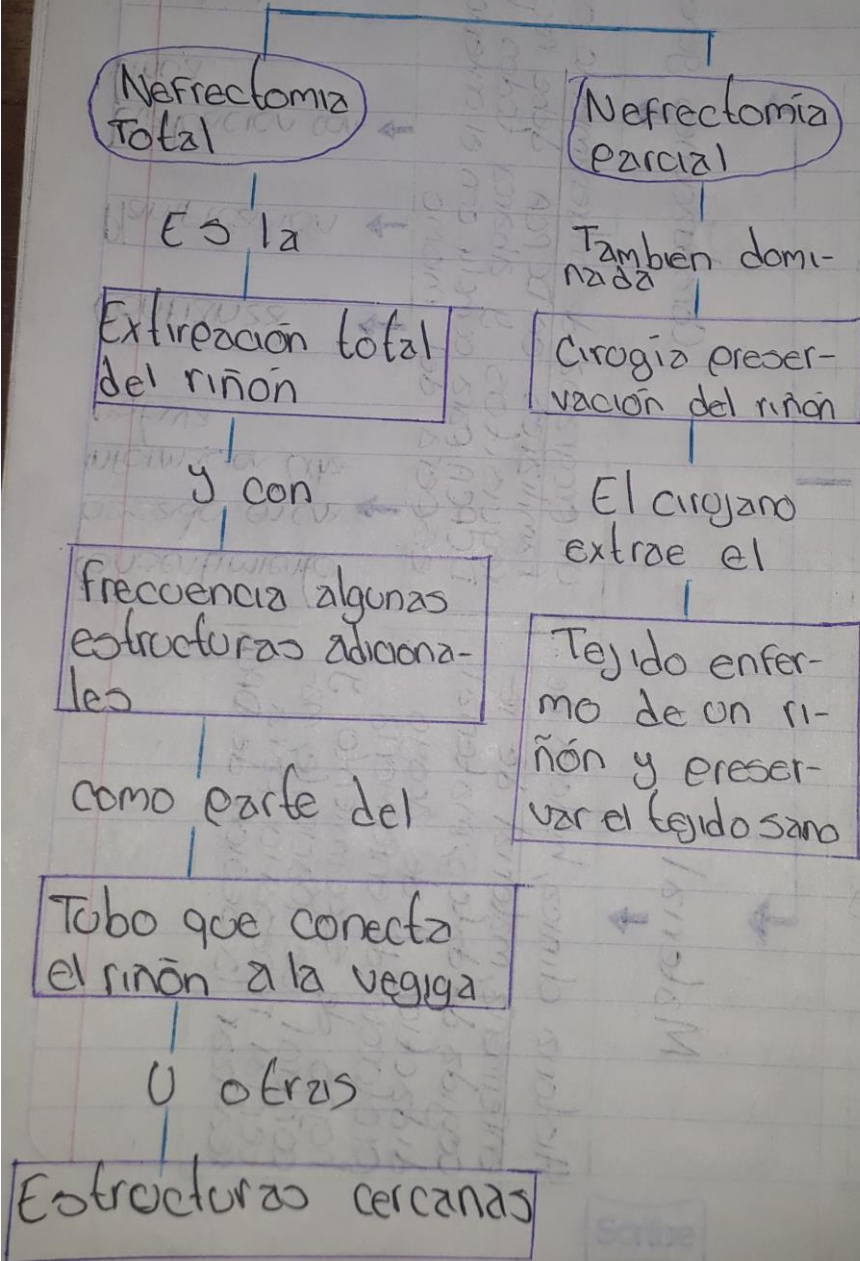 Nefrectomia
Total
Es la
Extirpación total
del riñón
y con
frecuencia algunas
estructuras adiciona-
les
como parte del
Tubo que conecta
el riñón a la vegiga
U otras
Estructuras cercanas
Nefrectomía
parcial
Tambien domi-
nada
Cirugia preser-
vación del riñón
El cirujano
extrae el
Tejido enfer-
mo de un ri-
ñón y preser-
var el tejido sano
Scribe